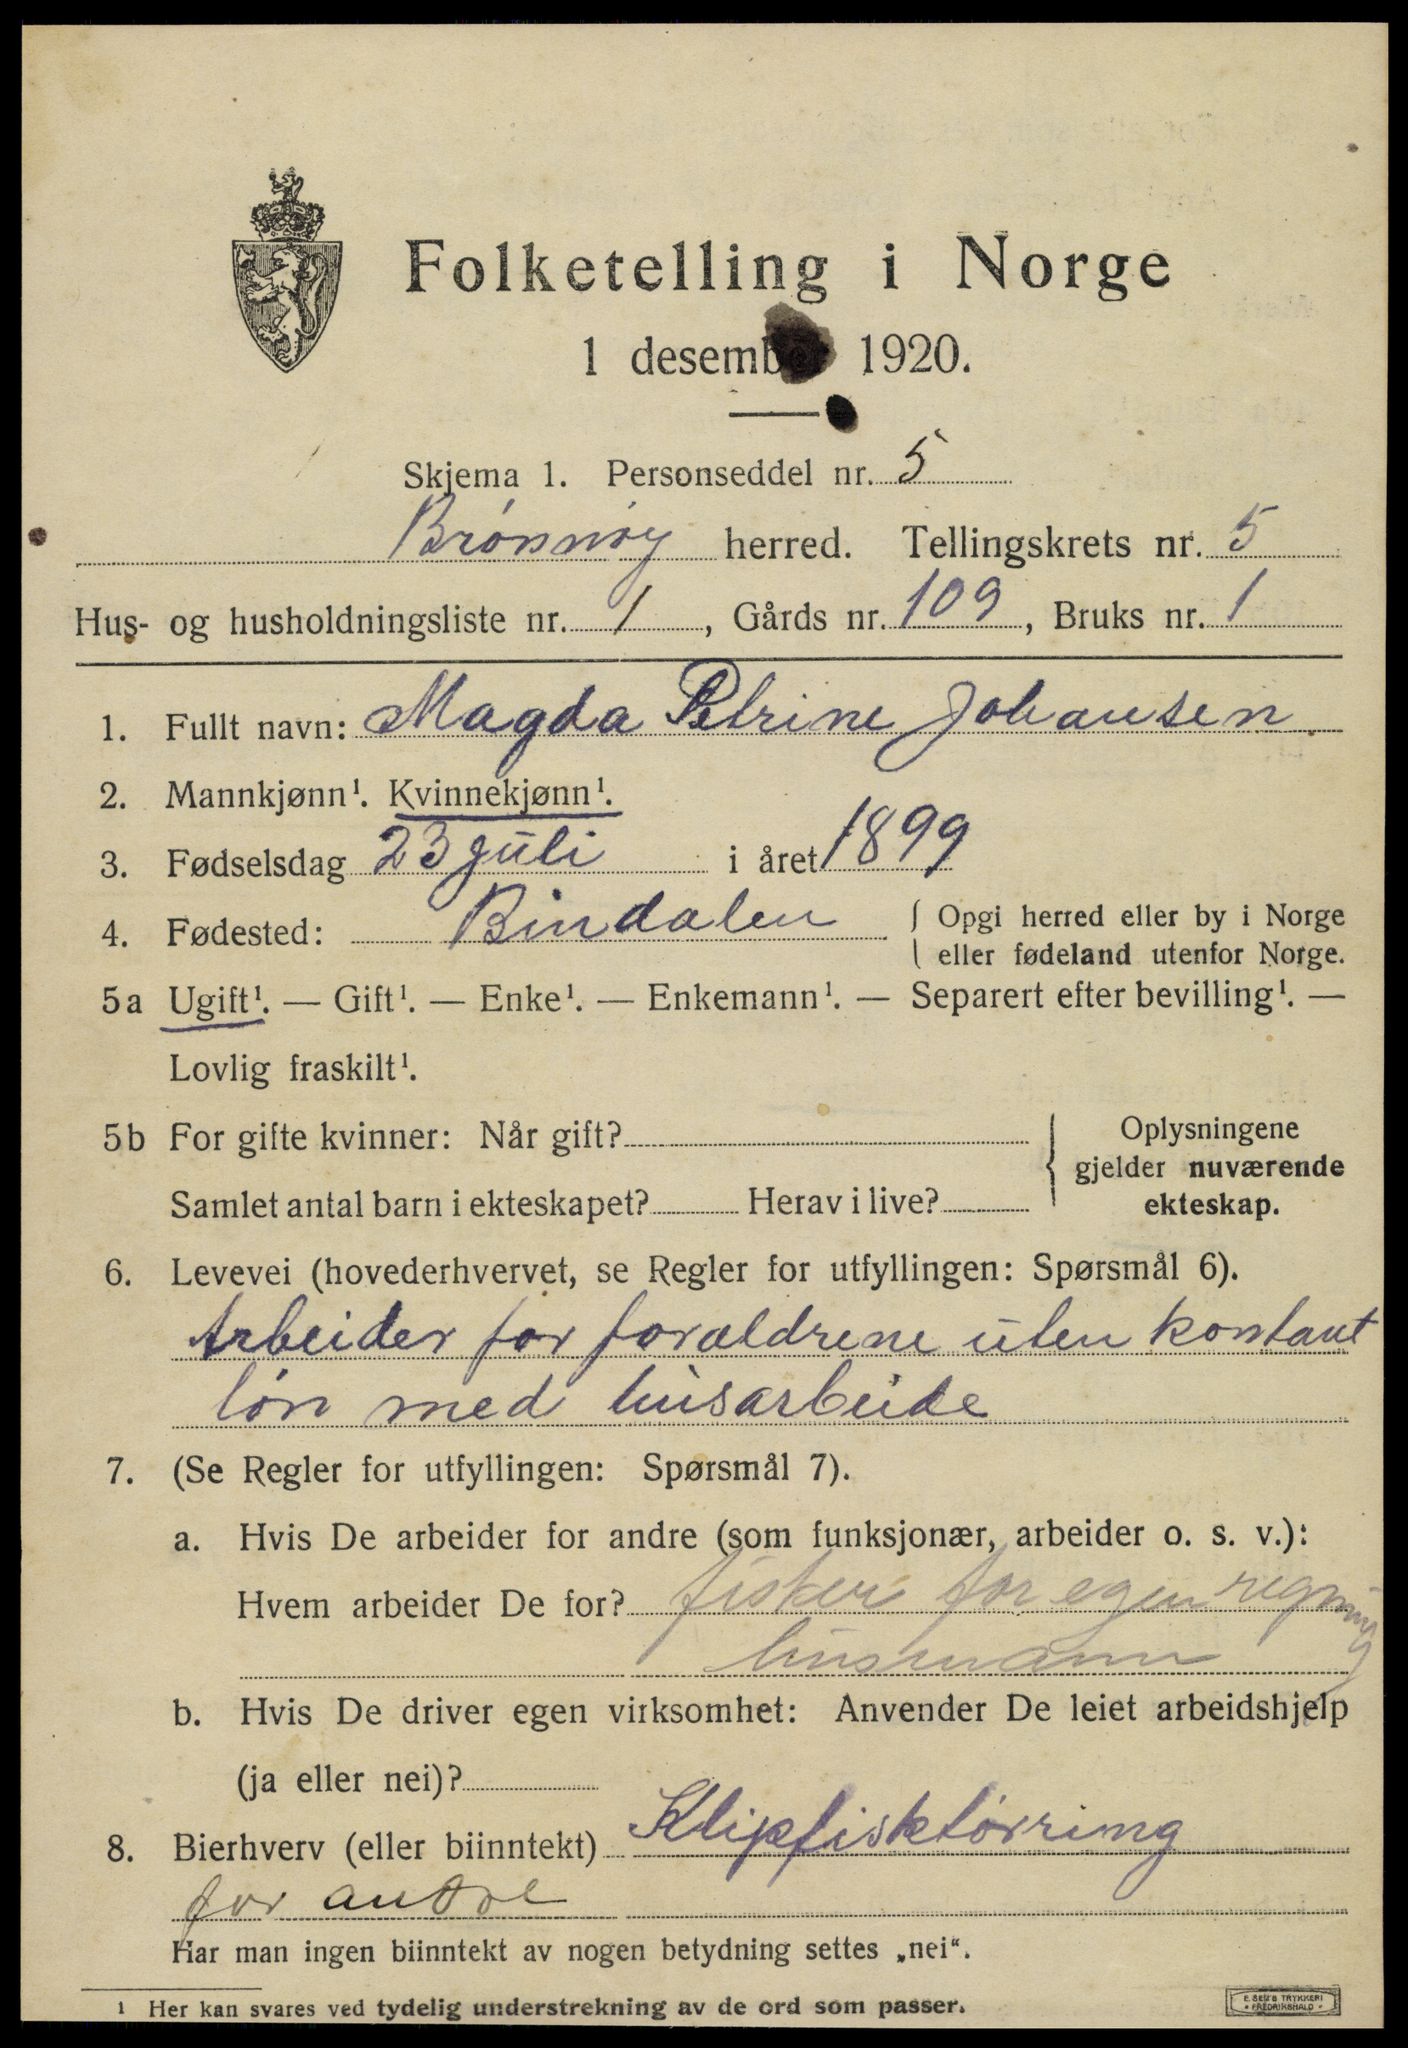 Folketelling i Norge
1 desember 1920.
Skjema 1. Personseddel nr. 5
Brønnøy herred. Tellingskrets nr. 5
Hus- og husholdningsliste nr. 1, Gårds nr. 109, Bruks nr. 1
1. Fullt navn: Magda Petrine Johansen
2. Mannkjønn¹. Kvinnekjønn¹.
3. Fødselsdag 23 juli i året 1899
4. Fødested: Bindalen { Opgi herred eller by i Norge
eller fødeland utenfor Norge.
5a Ugift¹. — Gift¹. — Enke¹. — Enkemann¹. — Separert efter bevilling¹. —
Lovlig fraskilt¹.
5b For gifte kvinner: Når gift?
Samlet antal barn i ekteskapet? Herav i live?
Oplysningene
gjelder nuværende
ekteskap.
6. Levevei (hovederhvervet, se Regler for utfyllingen: Spørsmål 6).
Arbeider for foraldrene uten kontant
løn med husarbeide
7. (Se Regler for utfyllingen: Spørsmål 7).
a. Hvis De arbeider for andre (som funksjonær, arbeider o. s. v.):
Hvem arbeider De for? fisker for egen regning
husmann
b. Hvis De driver egen virksomhet: Anvender De leiet arbeidshjelp
(ja eller nei)?
8. Bierhverv (eller biinntekt) Klipfisktørring
for andre
Har man ingen biinntekt av nogen betydning settes „nei“.
¹ Her kan svares ved tydelig understrekning av de ord som passer.
E. SEM'S TRYKKERI
• FREDRIKSHALD •